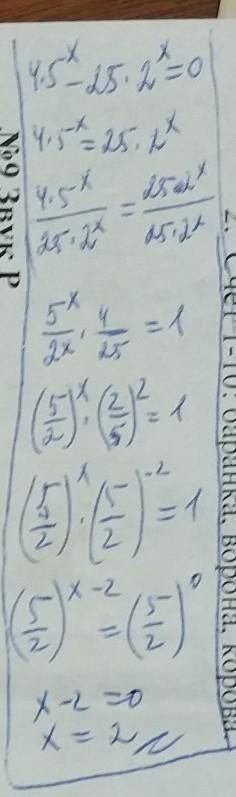 4·5^x − 25·2^x = 0
4·5^x = 25·2^x
4·5^x / 25·2^x = 25·2^x / 25·2^x
5^x / 2^x · 4/25 = 1
(5/2)^x · (2/5)^2 = 1
(5/2)^x · (5/2)^-2 = 1
(5/2)^x-2 = (5/2)^0
x-2 = 0
x = 2
№9 Звук Р
2. Счет 1-10: баранка, ворона, корова